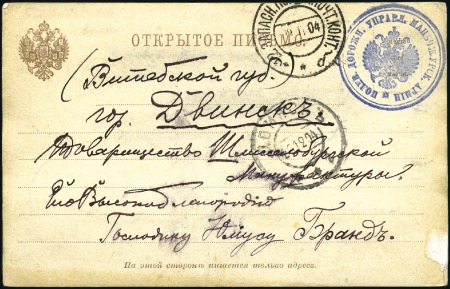 ОТКРЫТОЕ ПИ
ЗАПАСН. ПОЧТ. КОНТ.
04
ПОЛЕВ. ДОРОЖН. УПРАВЛ. МАНЬЧЖУРСК. АРМІИ
(Витебской губ.)
гор. Двинскъ.
Товарищество Шлиссельбургской
Мануфактуры.
Его Высокоблагородію
Господину Юлiусу Брандъ.
На этой сторонѣ пишется только адресъ.